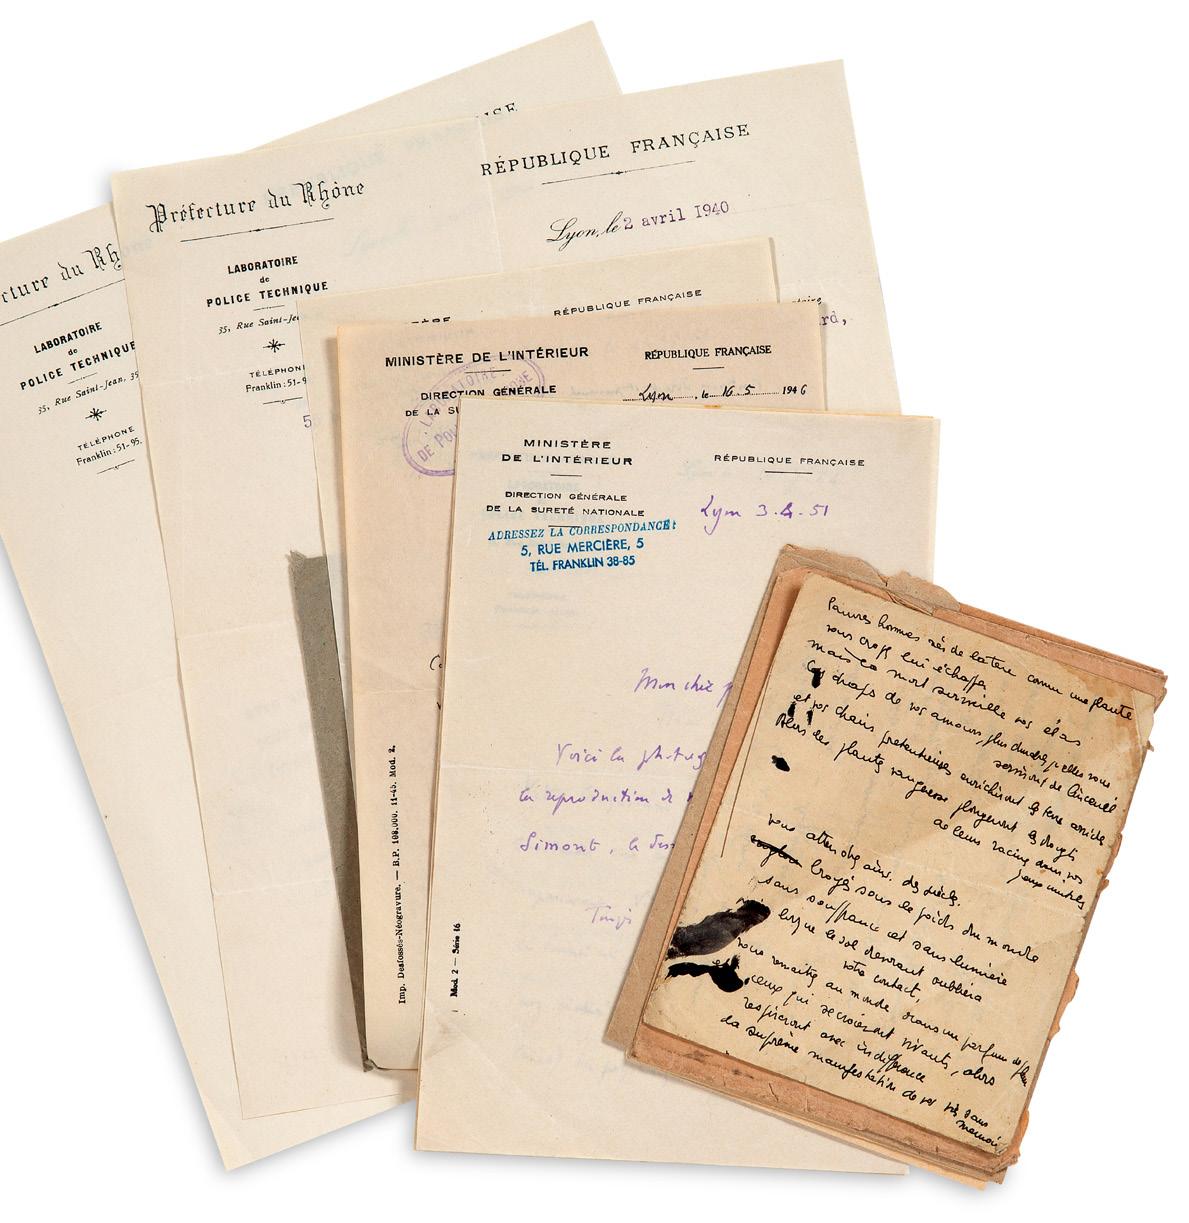 ISE
RÉPUBLIQUE FRANÇAISE
Lyon, le 2 avril 1940
rd,
Préfecture du Rhône
LABORATOIRE
de
POLICE TECHNIQUE
35, Rue Saint-Jea
TÉLÉPHO
Franklin: 51-9
5
cture du Rh
LABORATOIRE
de
POLICE TECHNIQUE
35, Rue Saint-Jean, 35
TÉLÉPHONE
Franklin: 51-95.
RÉPUBLIQUE FRANÇAISE
MINISTÈRE DE L'INTÉRIEUR
DIRECTION GÉNÉRALE
DE LA SU
RÉPUBLIQUE FRANÇAISE
Lyon, le 16.5 1946
LABORATOIRE
DE POL
Imp. Desfossés-Néogravure. — B.P. 108.000. 11-45. Mod. 2.
MINISTÈRE
DE L'INTÉRIEUR
DIRECTION GÉNÉRALE
DE LA SURETÉ NATIONALE
ADRESSEZ LA CORRESPONDANCE:
5, RUE MERCIÈRE, 5
TÉL. FRANKLIN 38-85
RÉPUBLIQUE FRANÇAISE
Lyon 3.4.51
Mon cher
Voici la photog
la reproduction de
Simont, le des
Mod. 2 — Série 16
Pauvres hommes nés de la terre comme une plante
vous croyez lui échapper
mais la mort surveille vos élans
draps de vos amours plus durables qu'elles vous
serviront de linceuil
et vos chairs prétentieuses enrichiront la terre
Alors des plants plongeront les doigts
de leurs racines dans vos
yeux
vous attendrez ainsi des siècles.
broyés sous le poids du monde
sans souffrance et sans lumière
lorsque le sol devenant oubliera
votre contact,
vous renaîtrez au monde dans un parfum de fleur
et ceux qui se croiront vivants, alors
respireront avec indifférence
la suprême manifestation de vos vies sans
memoire